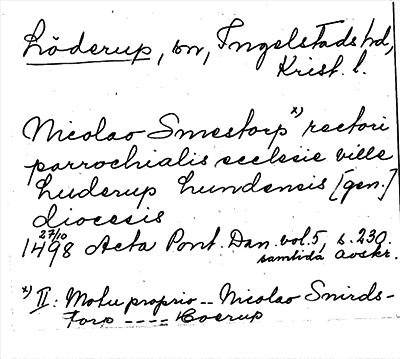 Löderup, sn, Ingelstads hd,
Krist. l.
Nicolao Smestorp x) rectori
parrochialis ecclesie ville
Luderup Lundensis [gen.]
diocesis
27/10
1498 Acta Pont. Dan. vol. 5, s. 230.
samtida avskr.
x) II: Motu proprio -- Nicolao Smirds-
torp ---- Hoerup